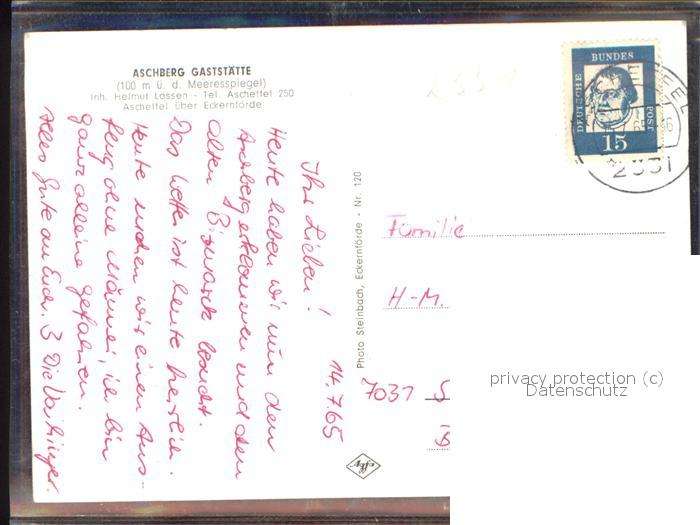 ASCHBERG GASTSTÄTTE
(100 m ü. d. Meeresspiegel)
Inh. Helmut Lassen - Tel. Ascheffel 250
Ascheffel über Eckernförde
14.7.65
Ihr Lieben!
Heute haben wir nun den
Aschberg erklommen und den
alten Bismarck besucht.
Das Wetter ist heute herrlich.
Heute machen wir einen Aus-
flug ohne Männer, ich bin
ganz alleine gefahren.
Alles Gute an Euch 3 Die
Photo Steinbach, Eckernförde - Nr. 120
Agfa
DEUTSCHE
BUNDES
POST
15
2331
Familie
H-M.
7031 S
privacy protection (c)
Datenschutz